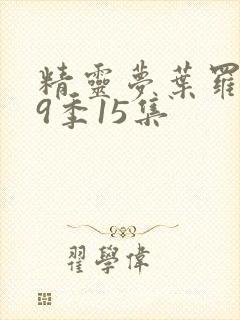 精靈夢葉羅
9季15集
翟學偉